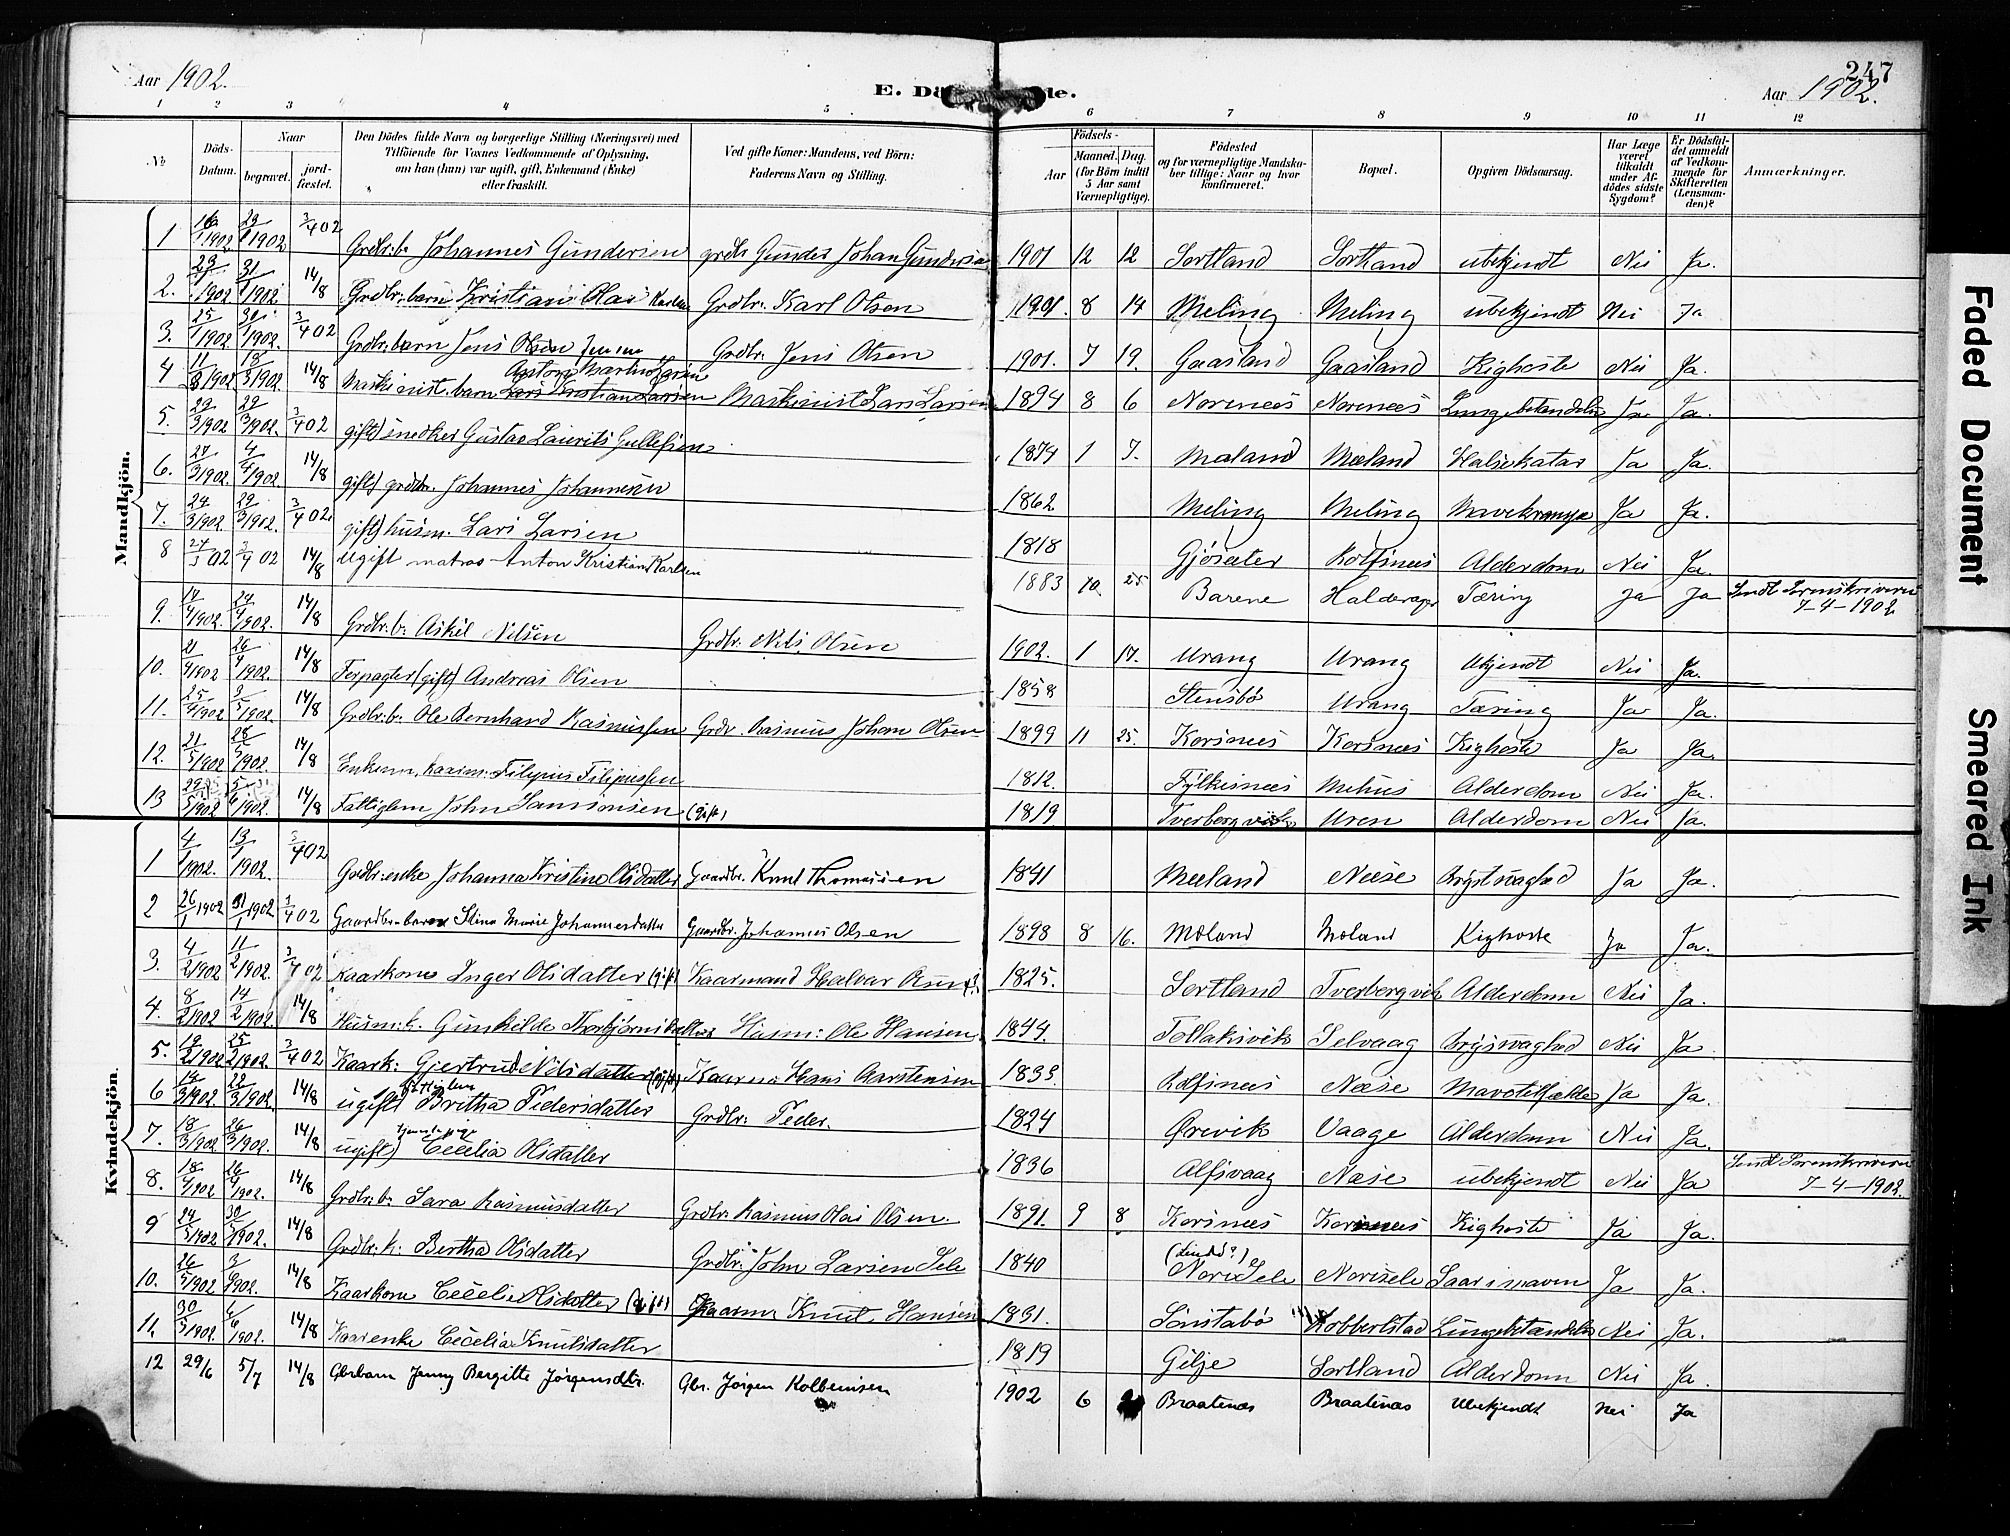 Aar 1902.
E. Dö de.
247
Aar 1902.
1 2 3 4 5 6 7 8 9 10 11 12
No
Döds-Datum.
Naar
begravet.
jord-fæstet.
Den Dödes fulde Navn og borgerlige Stilling (Næringsvei) med
Tilföiende for Voxnes Vedkommende af Oplysning,
om han (hun) var ugift, gift, Enkemand (Enke)
eller fraskilt.
Ved gifte Koner: Mandens, ved Börn:
Faderens Navn og Stilling.
Födsels-
Aar
Maaned. Dag.
(for Börn indtil
5 Aar samt
Værnepligtige).
Födested
og for værnepligtige Mandska-
ber tillige: Naar og hvor
konfirmeret.
Bopæl.
Opgiven Dödsaarsag.
Har Læge
været
tilkaldt
under Af-
dödes sidste
Sygdom?
Er Dödsfal-
det anmeldt
af Vedkom-
mende for
Skifteretten
(Lensman-
den)?
Anmærkninger.
Mandkjön.
1 16/1 1902 23/1 1902 3/4 02 Grdbr: b: Johannes Gundersen grdb Gunder Johan Gundersen 1901 12 12 Sortland Sortland ubekjendt Nei Ja.
2. 1902 31/1 1902 14/8 Grdbr: barn Kristian Olai Karlsen Grdbr: Karl Olsen 1901. 8 14 Meling Meling ubekjendt Nei Ja
3. 25/1 1902 1902. 3/4 02 Grdbr: barn Jens Olsen Jensen Grdbr: Jens Olsen 1901. 7 19. Gaasland Gaasland Kighoste Nei Ja.
4 11/3 1902 18/3 1902 14/8 Maskinist. barn Lars Kristian Larsen Anton Martin Larsen Maskinist Lars Larsen 1894 8 6 Norenees Norenees Lungebetændelse Ja Ja.
5. 23/3 1902 29/3 1902. 3/4 02 gift) snedker Gustav Laurits Gullefsen 1874 1 7. Mæland Mæland Halsekatar Ja Ja.
6. 27/3 1902 4/4 1902. 14/8 gift) grdbr. Johannes Johannesen 1862 Meling Meling Mavekrampe Ja Ja.
7. 24/3 1902. 29/3 1902. 3/4 02. gift) husm. Lars Larsen 1818 Gjøsæter Kolfsnees Alderdom Nei Ja.
8 24/3 02 3/4 02 14/8 Ugift matros Anton Kristian Karlsen 1883 10. 25 Barene Halderager Tæring Ja Ja Sendt Sorenskriveren 7-4-1902
9. 14/4 1902. 24/4 1902. 14/8 Grdbr: b: Askil Nilsen Grdbr: Nils Olsen 1902. 1 17. Urang Urang Ukjendt Nei Ja.
10. 21/4 1902 26/4 1902. 14/8 Forpagter (gift) Andreas Olsen 1858 Stensbö Urang Tæring Ja Ja.
11. 25/4 1902 3/5 1902. 14/8 Grdbr: b: Ole Bernhard Rasmussen Grdbr. Rasmus Johan Olsen 1899 11 25. Korsnees Korsnees Kighoste Ja Ja.
12. 21/5 1902 28/5 1902. 14/8 Enkem, kaarm: Filipus Filipussen 1812. Fylkesnees Mehus Alderdom Nei Ja.
13 29/5 1902 5/6 1902. 14/8 Fattiglem John Samsonsen (gift) 1819 Tverbergvik Uren Alderdom Nei Ja.
Kvindekjön.
1 4/1 1902. 13/1 1902. 3/4 02 Grdbr: enke Johanna Kristine Olsdatter Gaardbr. Knut Thomassen 1841 Mæland Næse Brystsvaghed Ja Ja.
2 26/1 1902 31/1 1902 3/4 02 Gaardbr. barn Stina Marie Johannesdatter Gaardbr. Johannes Olsen 1898 8 16. Mæland Mæland Kighoste Ja Ja.
3. 4/2 1902 11/2 1902. 3/4 02 Kaarkone Inger Olsdatter (gift) Kaarmand Halvar 1825. Sortland Tverbergvik Alderdom Nei Ja.
4. 8/2 1902 14/2 1902. 14/8 Husm: k. Gunhilde Thorbjørnsdatter Husm: Ole Hansen 1844. Tollaksvik Selvaag Brystsvaghed Nei Ja.
5. 19/2 1902 25/2 1902. 3/4 02 Kaark: Gjertrud Nilsdatter (gift) Kaarm: Hans Aarstensen 1833 Kolfsnees Næse Mavetilfælde Ja Ja.
6 14/3 1902. 26/3 1902. 14/8 ugift fattiglem Britha Pedersdatter Grdbr: Peder. 1824 Ørevik Vaage Alderdom Nei Ja.
7. 18/3 1902. 26/3 1902. 14/8 ugift) tjenestepige Cecelia Olsdatter 1836 Alfsvaag Næse ubekjendt Nei Ja Sendt Sorenskriveren 7-4-1902.
8. 18/4 1902 26/4 1902. 14/8 Grdbr: b: Sara Rasmusdatter Grdbr: Rasmus Olai Olsen. 1891. 9 8 Korsnees Korsnees Kighoste Ja Ja.
9 24/5 1902 30/5 1902. 14/8 Grdbr: k: Bertha Olsdatter Grdbr: John Larsen Sele 1840 (Lindö?) Norisele Norisele Saar i maven Ja Ja.
10. 26/5 1902 3/6 1902. 14/8 Kaarkone Cecelie Olsdatter (gift) Kaarm Knut Hansen 1831. Sönstabö Kobberlstad Lungebetændelse Nei Ja.
11. 30/5 1902. 6/6 1902. 14/8 Kaarenke Cecelia Knutsdatter 1819 Gilje Sortland Alderdom Nei Ja.
12 29/6 5/7 14/8 Gbrbarn Jenny Bergitte Jørgensdtr. Gbr. Jörgen Kolbensen 1902 6 Braatenæs Braatenæs Ubekjendt Nei Ja
Faded Document
Smeared Ink